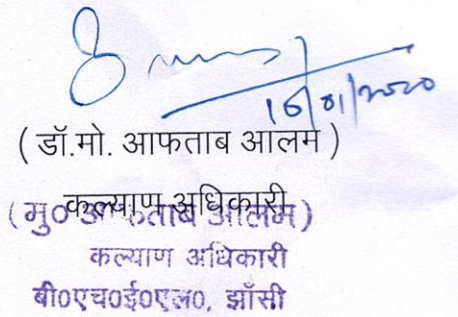 16/01/2020
( डॉ.मो. आफताब आलम )
कल्याण अधिकारी
(मु० आफताब आलम)
कल्याण अधिकारी
बी०एच०ई०एल०, झाँसी